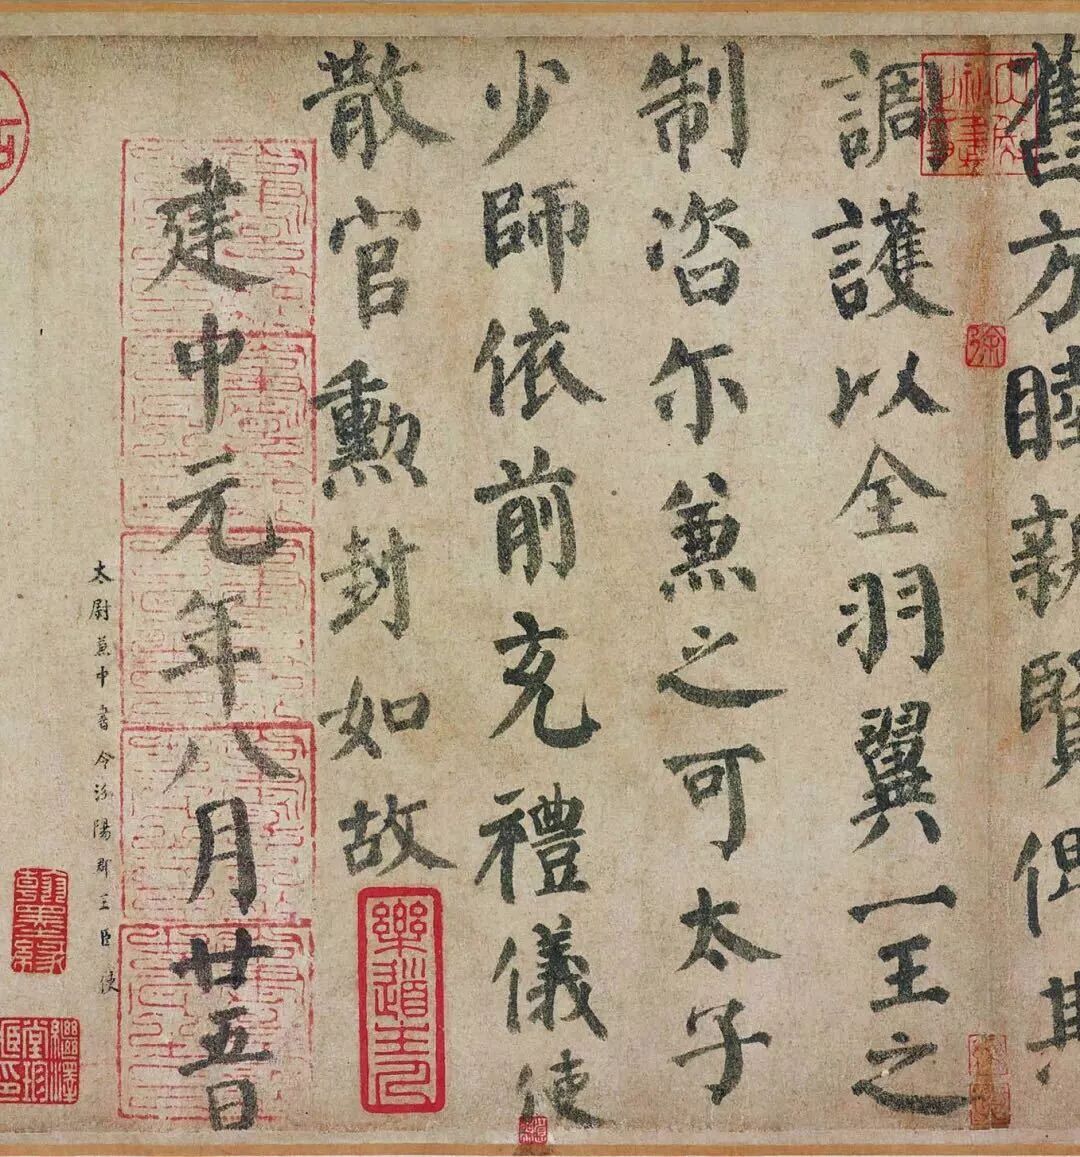 舊方睦新賢俾其
調護以全羽翼一王之
制咨尔兼之可太子
少師依前充禮儀使
散官勳封如故
建中元年八月廿五日
太尉兼中書令汾陽郡王臣 使
樂道主人